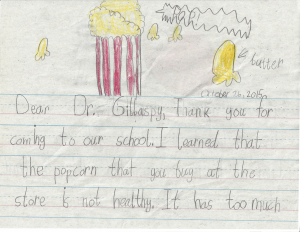 butter
October 26, 2015
Dear Dr. Gillaspy, Thank you for
coming to our school. I learned that
the popcorn that you buy at the
store is not healthy. It has too much